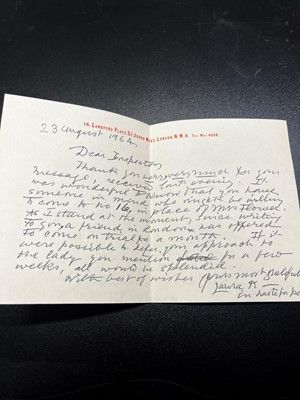 16, LANGFORD PLACE, ST. JOHN'S WOOD, LONDON, N.W.8. TEL: MAI. 4200.
23 August 1964.
Dear Inspector,
Thank you very very much for your
message, received last evening. It
was wonderful to know that you have
someone in mind who might be willing
to come to No 16, in place of Mrs Flower.
As I stand at the moment, since writing
to you a friend in London was offered
to come on trial for a month. If it
were possible to defer your approach to
the lady you mention for a few
weeks, all would be splendid.
With best of wishes yours most gratefully
Laura K
in haste for post